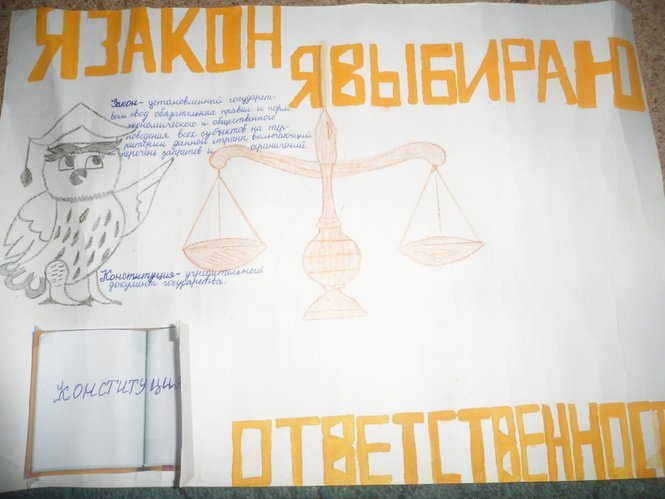 Я ЗАКОН
Я ВЫБИРАЮ
Закон- установленный государст-
вом свод обязательных правил и норм
экономического и общественного
поведения всех субъектов на тер-
ритории данной страны, включающий
перечень запретов и ограничений
Конституция- учридительного
документ государства.
КОНСТИТУЦИЯ
ОТВЕТСТВЕННОСТ